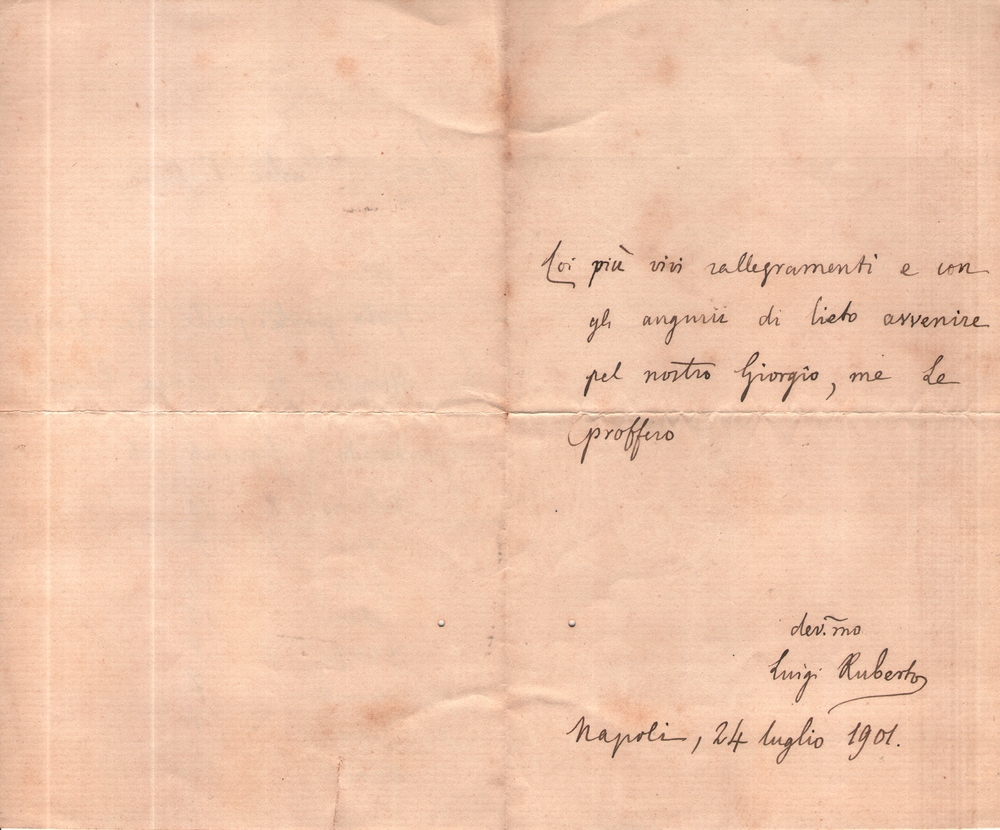 Coi più vivi rallegramenti e con
gli augurii di lieto avvenire
pel nostro Giorgio, me Le
proffero
dev.mo
Luigi Ruberto
Napoli, 24 luglio 1901.